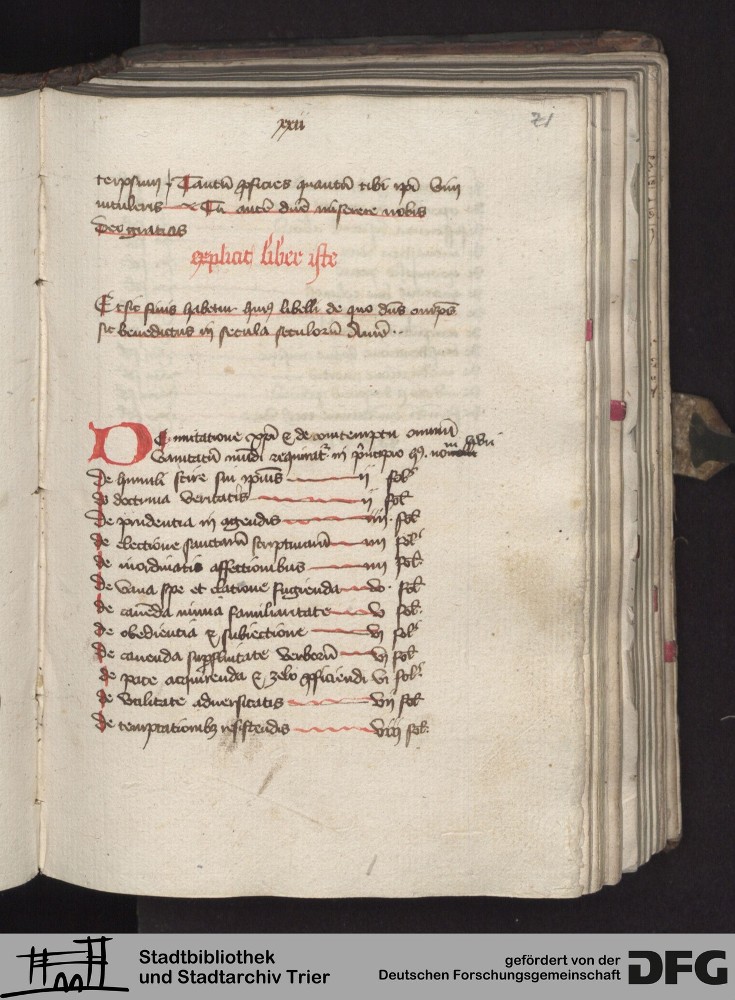 xxii
71
Tantũ ꝓficies quantũ tibi ipi vim
intuleris Tu autẽ dñe miserere nobis
Deo gratias
explicit liber iste
Et sic finis habetur huiꝰ libelli de quo dñs om̃ps
sit benedictus in secula seculorũ Amẽ
De imitatione xp̃i et de contemptu omniũ
vanitatũ mũdi requirat᷑ in p̃ncipio
De humili scire sui ipius ij fol
de doctrina veritatis ij fol
De prudentia in agendis iij fol
de electione sanctarũ scripturarũ iiij fol
de inordinatis affectionibus iiij fol
de vana spe et elatione fugienda v fol
de cauẽda nimia familiaritate v fol
de obedientia et subiectione vj fol
de cauenda suꝑfluitate verborũ vj fol
de pace acquirenda et zelo ꝓficiendi vi fol
de vtilitate aduersitatis vij fol
de temptationibꝫ resistendis viij fol
Stadtbibliothek
und Stadtarchiv Trier
gefördert von der
Deutschen Forschungsgemeinschaft
DFG